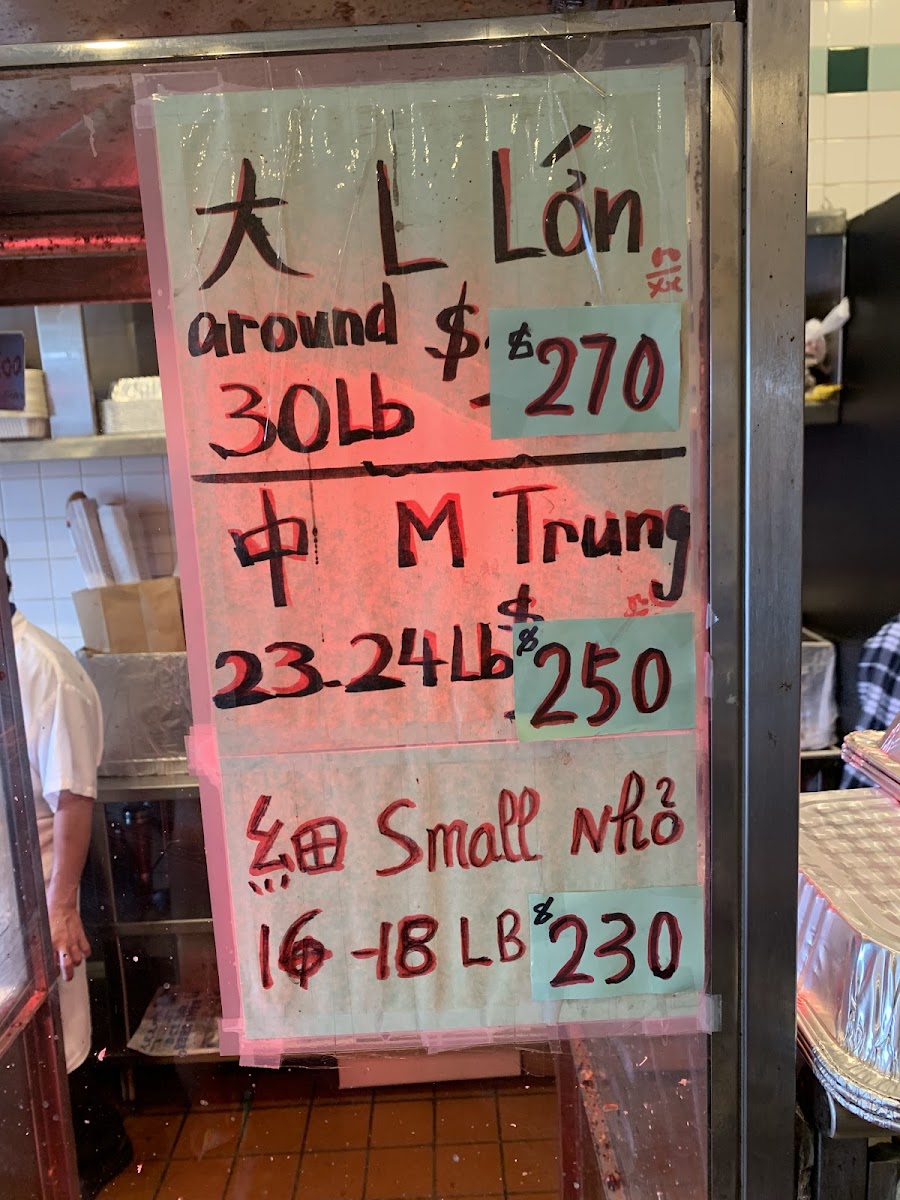 大 L Lớn
around $
30Lb $270
中 M Trung
$
23-24Lb $250
細 Small Nhỏ
16-18 LB $230